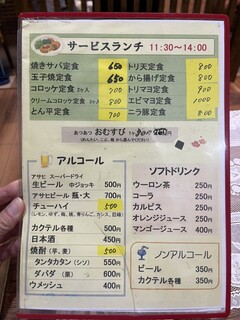 サービスランチ 11:30～14:00
焼きサバ定食 650
玉子焼き定食 650
コロッケ定食 700
クリームコロッケ定食 800
とん平定食 700
トリ天定食 800
から揚げ定食 800
トリマヨ定食 800
エビマヨ定食 1000
ニラ豚定食 800
あつあつ おむすび
アルコール
アサヒ スーパードライ
生ビール 中ジョッキ 500円
アサヒビール 瓶・大 700円
チューハイ 500
カクテル各種 500円
日本酒 450円
焼酎(芋、麦) 500
タンタカタン(シソ) 550円
ダバダ(栗) 600円
ウメッシュ 400円
ソフトドリンク
ウーロン茶 250円
コーラ 250円
カルピス 250円
オレンジジュース 250円
マンゴージュース 400円
ノンアルコール
ビール 350円
カクテル各種 350円